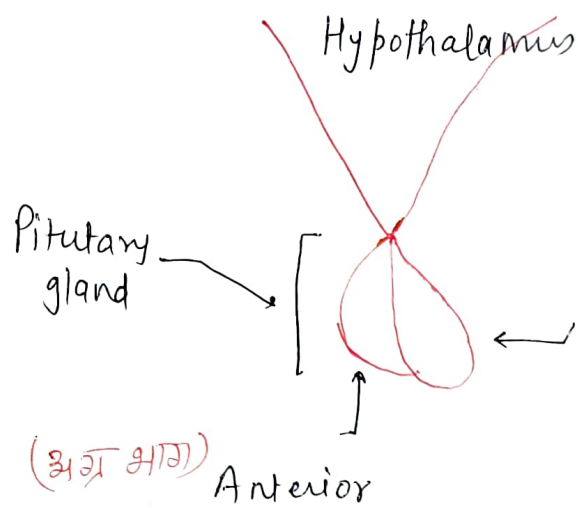 Hypothalamus
Pitutary
gland
(अग्र भाग)
Anterior